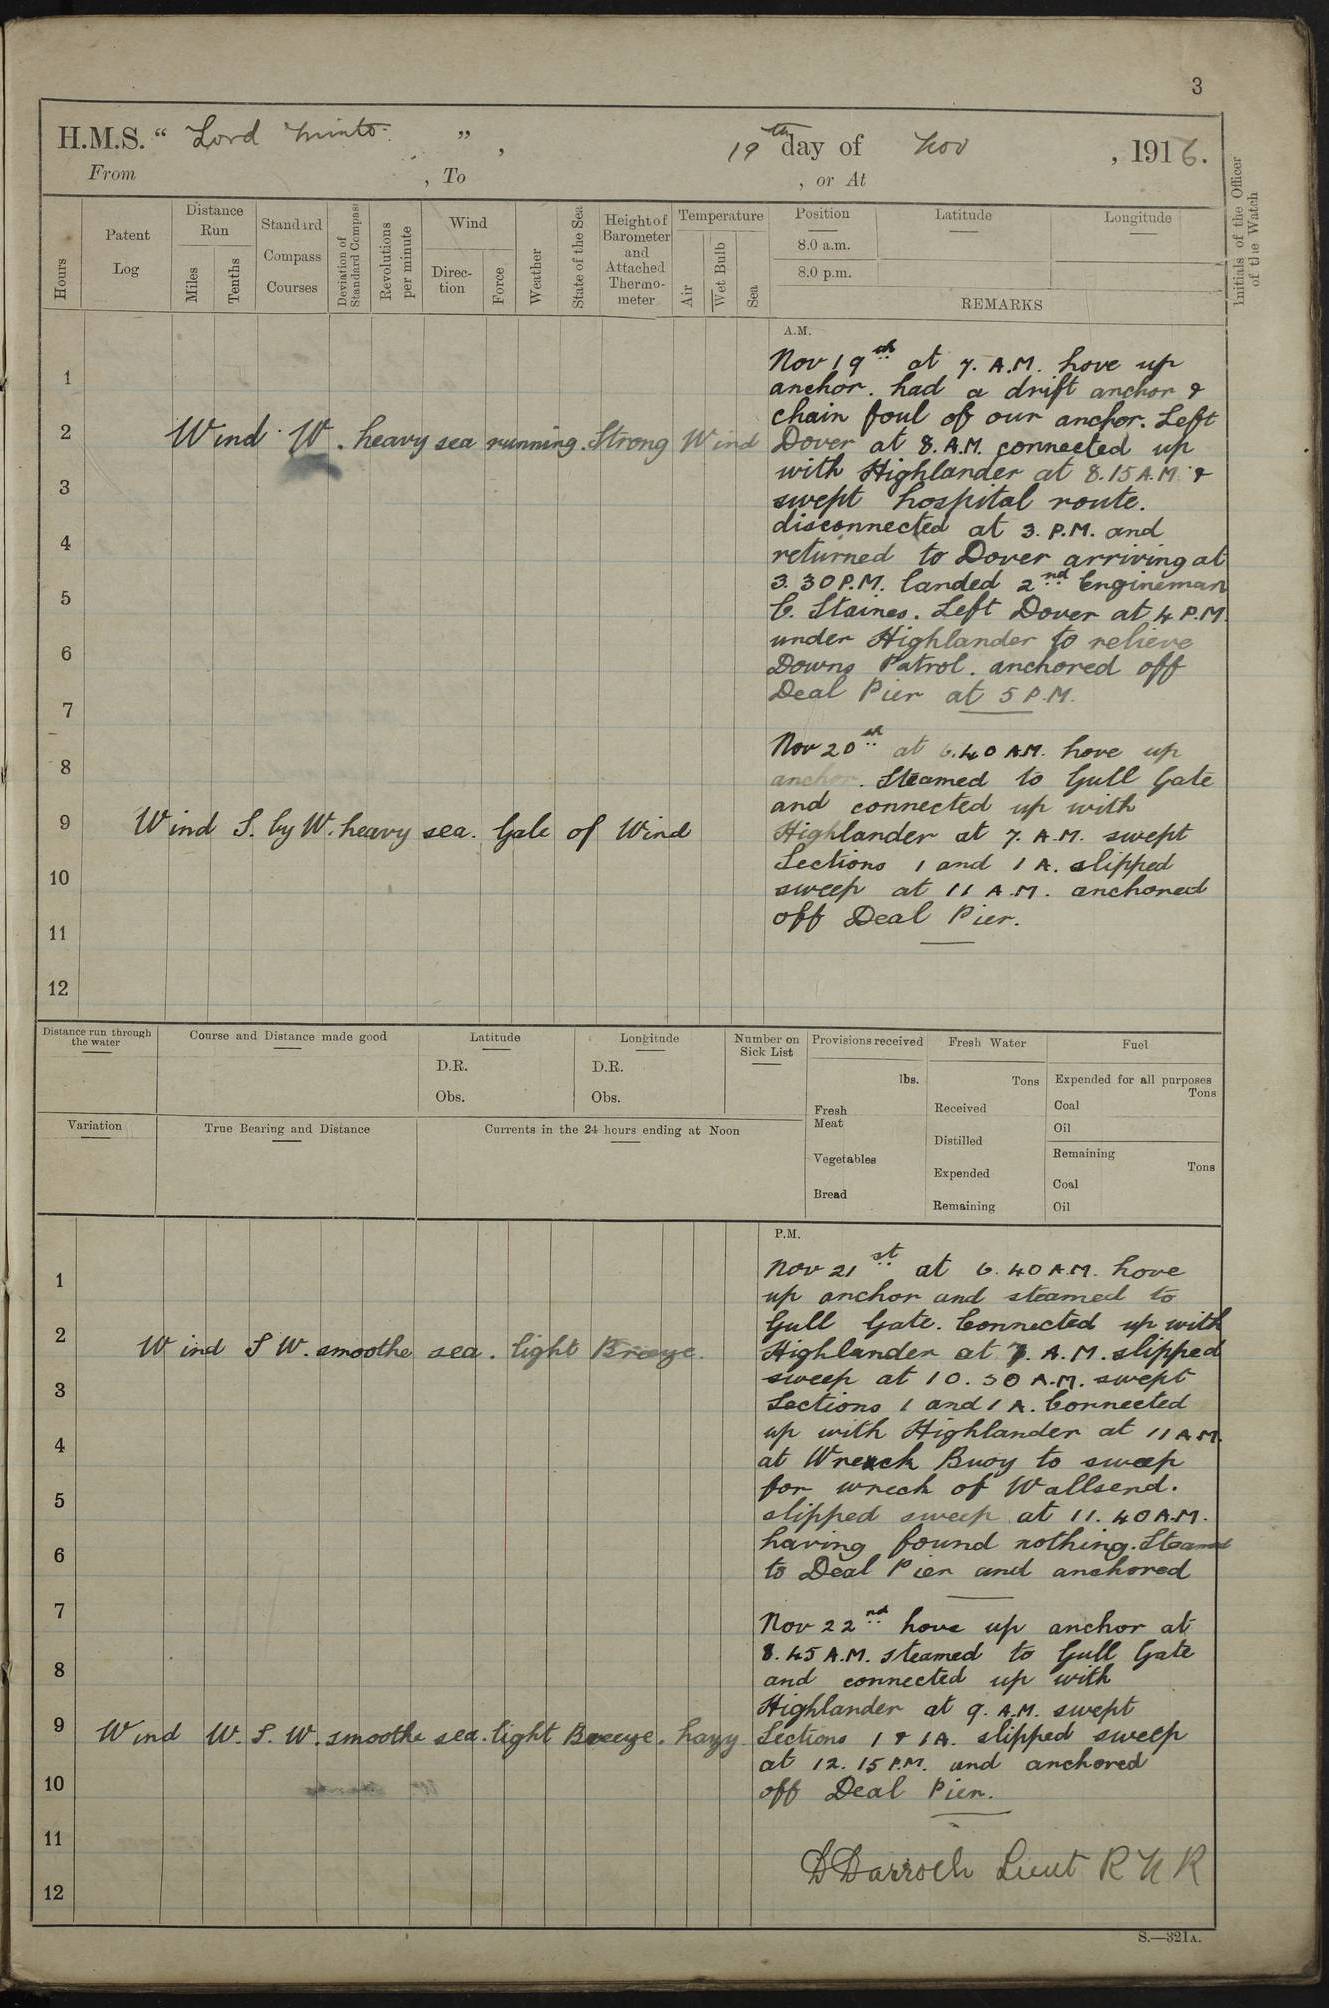 3
H.M.S. “ Lord Minto ” , 19th day of Nov , 1916.
From , To , or At
Hours
Patent Log
Distance Run
Miles
Tenths
Standard Compass Courses
Deviation of Standard Compass
Revolutions per minute
Wind
Direction
Force
Weather
State of the Sea
Height of Barometer and Attached Thermometer
Temperature
Air
Wet Bulb
Sea
Position
8.0 a.m.
8.0 p.m.
Latitude
Longitude
REMARKS
Initials of the Officer of the Watch
A.M.
1
2
3
4
5
6
7
8
9
10
11
12
Wind W. heavy sea running. Strong Wind
Wind S. by W. heavy sea. Gale of Wind
Nov 19th at 7. A.M. hove up
anchor. had a drift anchor &
chain foul of our anchor. Left
Dover at 8. A.M. connected up
with Highlander at 8.15 A.M. &
swept hospital route.
disconnected at 3. P.M. and
returned to Dover arriving at
3.30 P.M. landed 2nd Engineman
C. Staines. Left Dover at 4 P.M.
under Highlander to relieve
Downs Patrol. anchored off
Deal Pier at 5 P.M.
Nov 20th at 6.40 AM. hove up
anchor. Steamed to Gull Gate
and connected up with
Highlander at 7. A.M. swept
Sections 1 and 1 A. slipped
sweep at 11 A.M. anchored
off Deal Pier.
Distance run through the water
Course and Distance made good
Latitude
D.R.
Obs.
Longitude
D.R.
Obs.
Number on Sick List
Provisions received
lbs.
Fresh Meat
Vegetables
Bread
Fresh Water
Tons
Received
Distilled
Expended
Remaining
Fuel
Expended for all purposes
Tons
Coal
Oil
Remaining
Tons
Coal
Oil
Variation
True Bearing and Distance
Currents in the 24 hours ending at Noon
P.M.
1
2
3
4
5
6
7
8
9
10
11
12
Wind S W. smoothe sea. light Breeze.
Wind W. S. W. smoothe sea. light Breeze. hazy
Nov 21st at 6.40 A.M. hove
up anchor and steamed to
Gull Gate. Connected up with
Highlander at 7. A.M. slipped
sweep at 10.30 A.M. swept
Sections 1 and 1 A. Connected
up with Highlander at 11 A.M.
at Wreck Buoy to sweep
for wreck of Wallsend.
slipped sweep at 11.40 A.M.
having found nothing. Steamed
to Deal Pier and anchored
Nov 22nd hove up anchor at
8.45 A.M. steamed to Gull Gate
and connected up with
Highlander at 9. A.M. swept
Sections 1 & 1A. slipped sweep
at 12.15 P.M. and anchored
off Deal Pier.
D Darroch Lieut R N R
S.—321A.